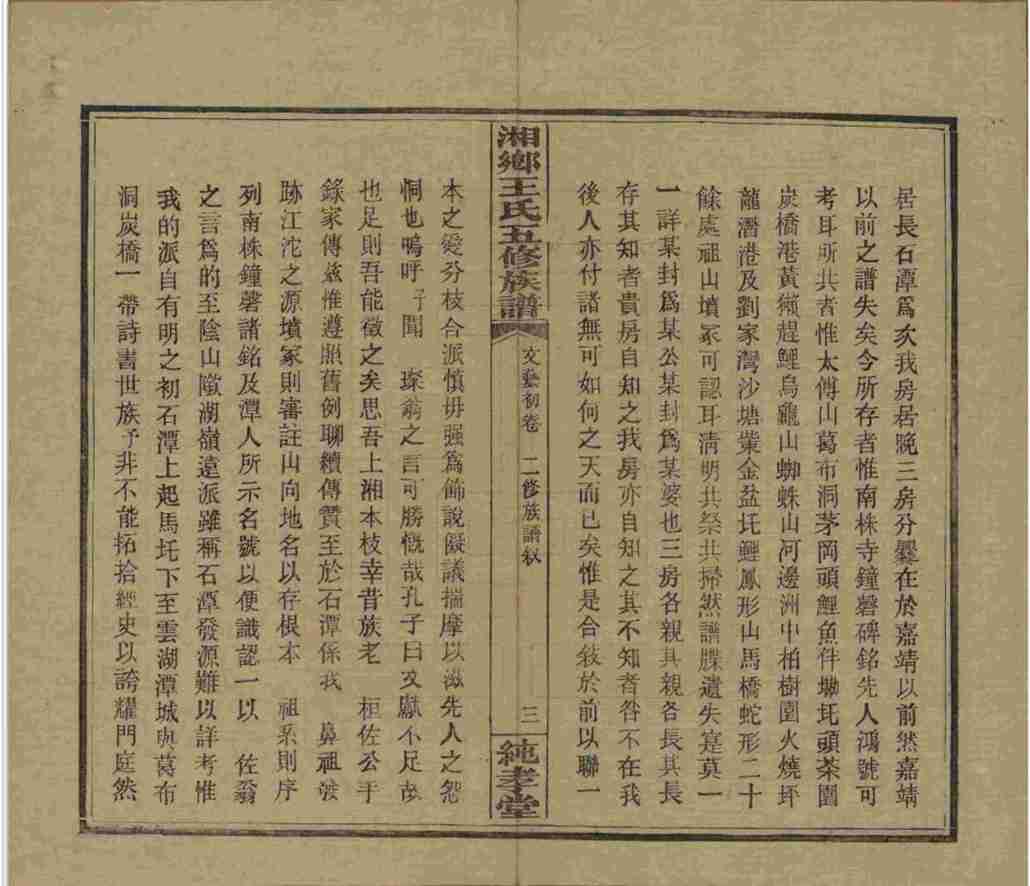 居長石潭爲次我房居晚三房分爨在於嘉靖以前然嘉靖
以前之譜失矣今所存者惟南株寺鐘磬碑銘先人鴻號可
考耳所共者惟太傅山葛布洞茅岡頭鯉魚伴坳圫頭茶園
炭橋港黃獺趕鯉烏龜山蜘蛛山河邊洲中柏樹園火燒坪
龍潛港及劉家灣沙塘紫金盆圫鯉鳳形山馬橋蛇形二十
餘處祖山墳冢可認耳淸明共祭共掃然譜牒遺失寔莫一
一詳某封爲某公某封爲某婆也三房各親其親各長其長
存其知者貴房自知之我房亦自知之其不知者咎不在我
後人亦付諸無可如何之天而已矣惟是合敍於前以聯一
湘鄉王氏五修族譜
文藝初卷 二修族譜敘
三
純孝堂
本之愛分枝合派愼毋强爲飾說儗議揣摩以滋先人之怨
恫也嗚呼予聞 琛翁之言可勝慨哉孔子曰文獻不足故
也足則吾能徵之矣思吾上湘本枝幸昔族老 桓佐公手
錄家傳茲惟遵照舊例聊續傳贊至於石潭係我 鼻祖發
跡江沱之源墳冢則審註山向地名以存根本 祖系則序
列南株鐘磬諸銘及潭人所示名號以便識認一以 佐翁
之言爲的至陰山㘐湖嶺遠派雖稱石潭發源難以詳考惟
我的派自有明之初石潭上起馬圫下至雲湖潭城與葛布
洞炭橋一帶詩書世族予非不能拓拾經史以誇耀門庭然